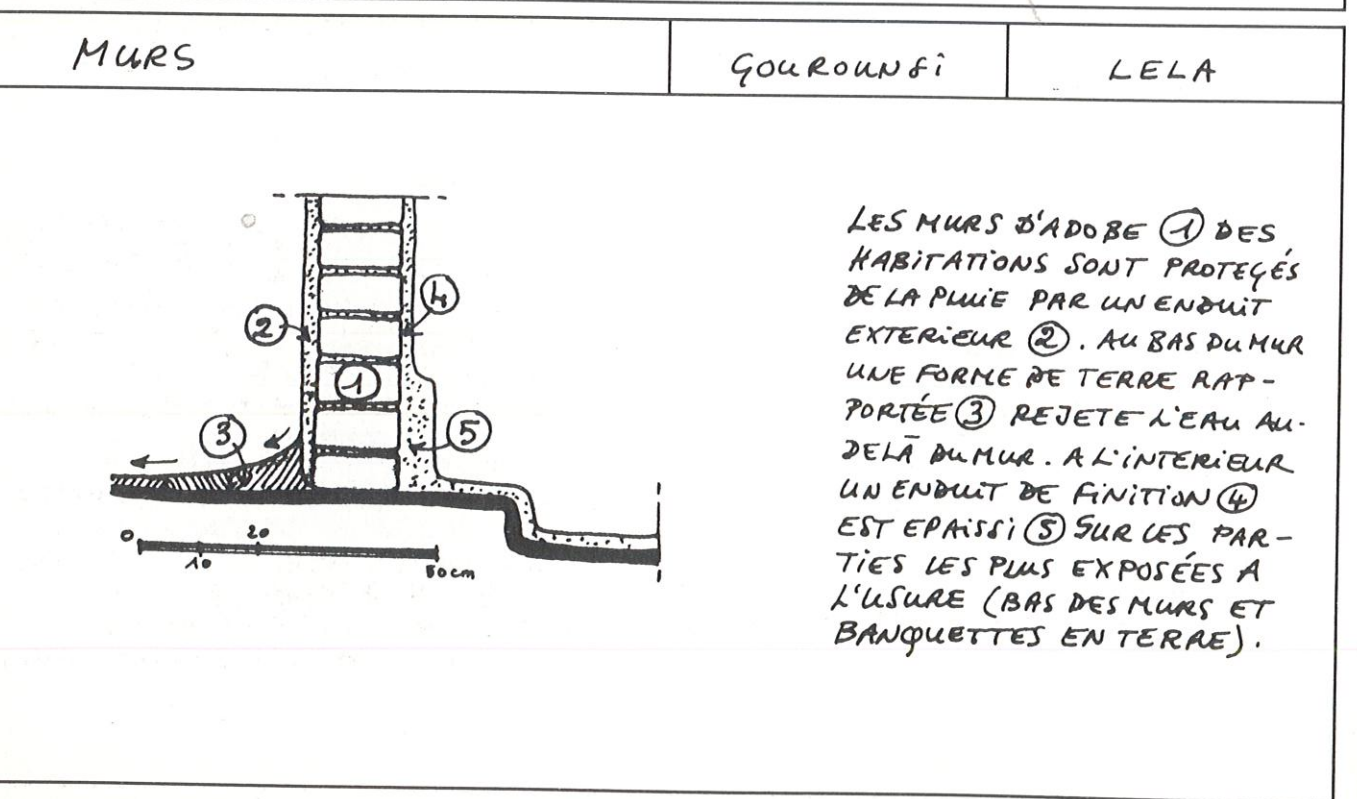 MURS
GOUROUNSI
LELA
LES MURS D'ADOBE ① DES
HABITATIONS SONT PROTEGÉS
DE LA PLUIE PAR UN ENDUIT
EXTERIEUR ②. AU BAS DU MUR
UNE FORME DE TERRE RAP-
PORTÉE ③ REJETE L'EAU AU-
DELÀ DU MUR. A L'INTERIEUR
UN ENDUIT DE FINITION ④
EST EPAISSI ⑤ SUR LES PAR-
TIES LES PLUS EXPOSÉES A
L'USURE (BAS DES MURS ET
BANQUETTES EN TERRE).
④
②
①
③
⑤
0
20
10
50cm